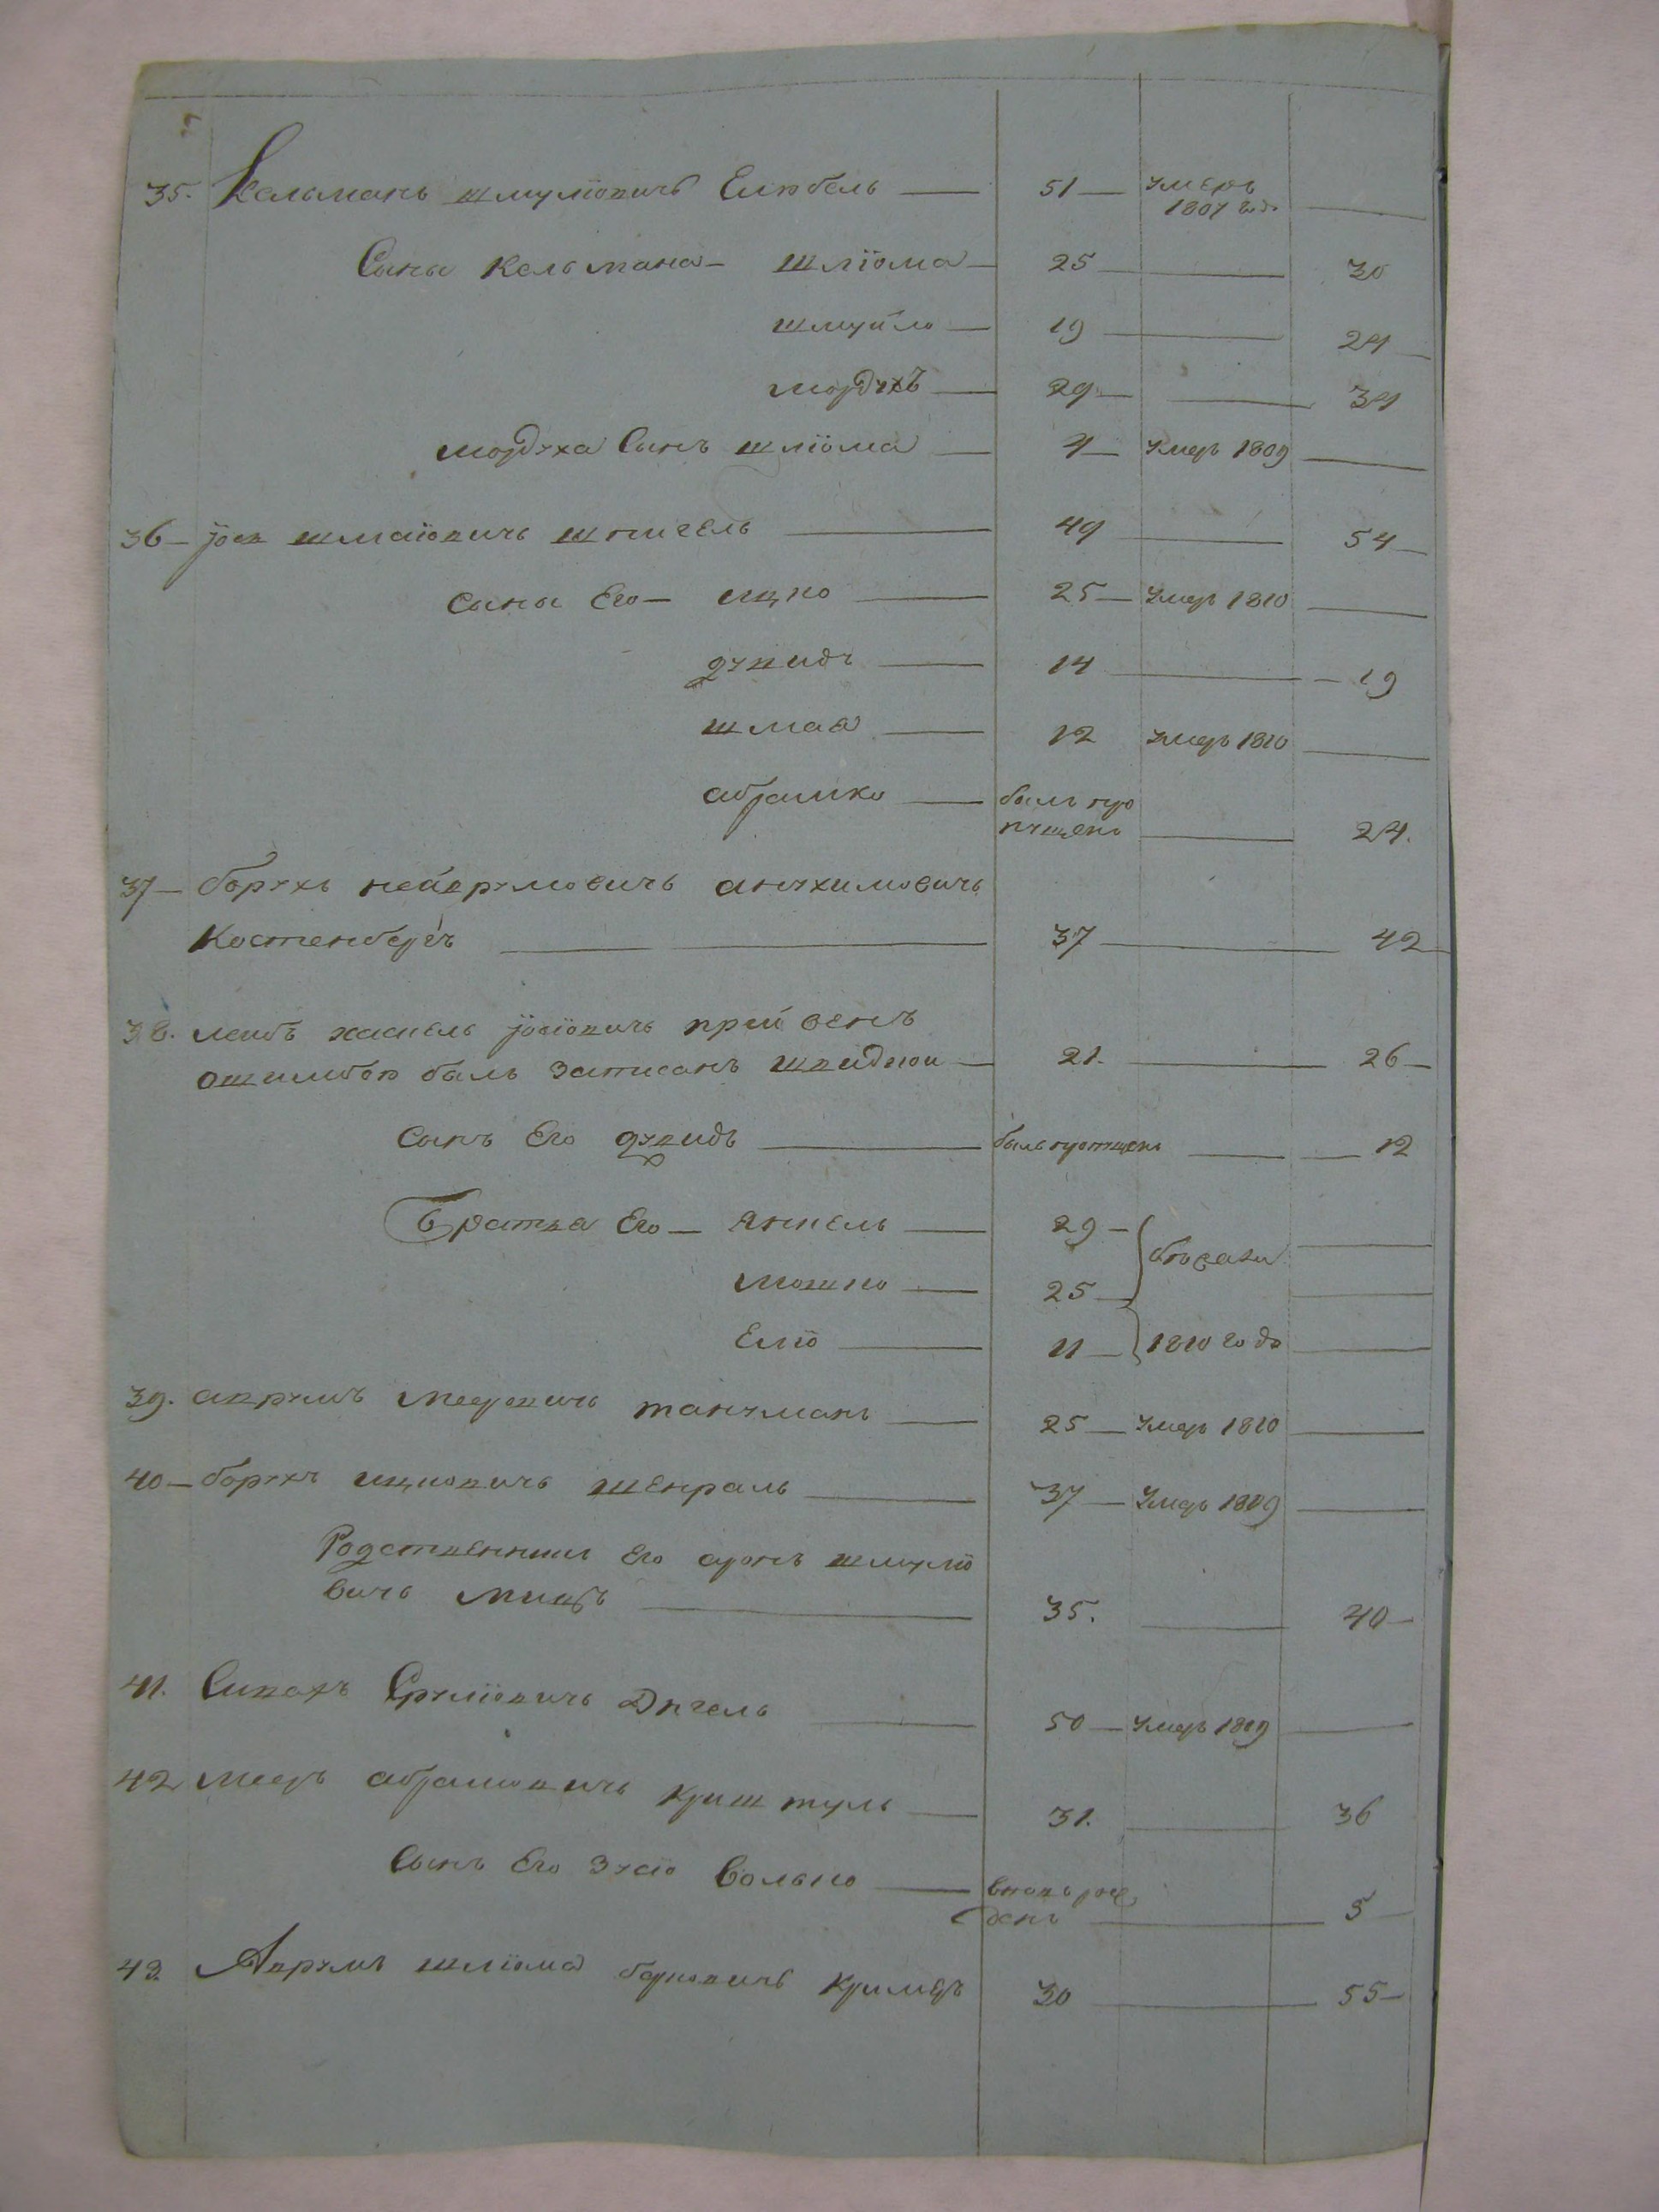 35. Кельманъ шмулiовичъ Елкбель — 51 — умеръ
1807 год. —
Сыны Кельмана — шлiома — 25 — 30
шмуйло — 19 — 24 —
мордухъ — 29 — 34
мордуха Сынъ шлiома — 4 — умеръ 1809 —
36 — iосъ шмаiовичъ шпигель — 49 — 54 —
сыны Его — ицко — 25 — умеръ 1810 —
дувидъ — 14 — 19
шмая — 12 умеръ 1810 —
абрамко — былъ про
пущенъ — 24.
37 — борухъ анухимовичъ
Костенбергъ — 37 — 42 —
38. леибъ хаскель iосiовичъ
ошибкою былъ записанъ — 21. — 26 —
сынъ Его дувидъ — былъ пропущенъ — 12
Братья Его — янкель — 29 — бѣжали —
мошко — 25 — —
Елiо — 11 — 1810 года —
39. аврумъ меровичъ танцманъ — 25 — умеръ 1810 —
40 — борухъ ицковичъ шенраль — 37 — умеръ 1809 —
Родственникъ Его аронъ шмулiо
вичъ — 35. — 40 —
41. Сиахъ Срулiовичъ Дигель — 50 — умеръ 1809 —
42 меръ абрамовичъ криштуль — 31. — 36
Сынъ Его Зусiо Волько — вновь рож
денъ — 5 —
43. Аврумъ шлiома берковичъ кримеръ 30 — 55 —